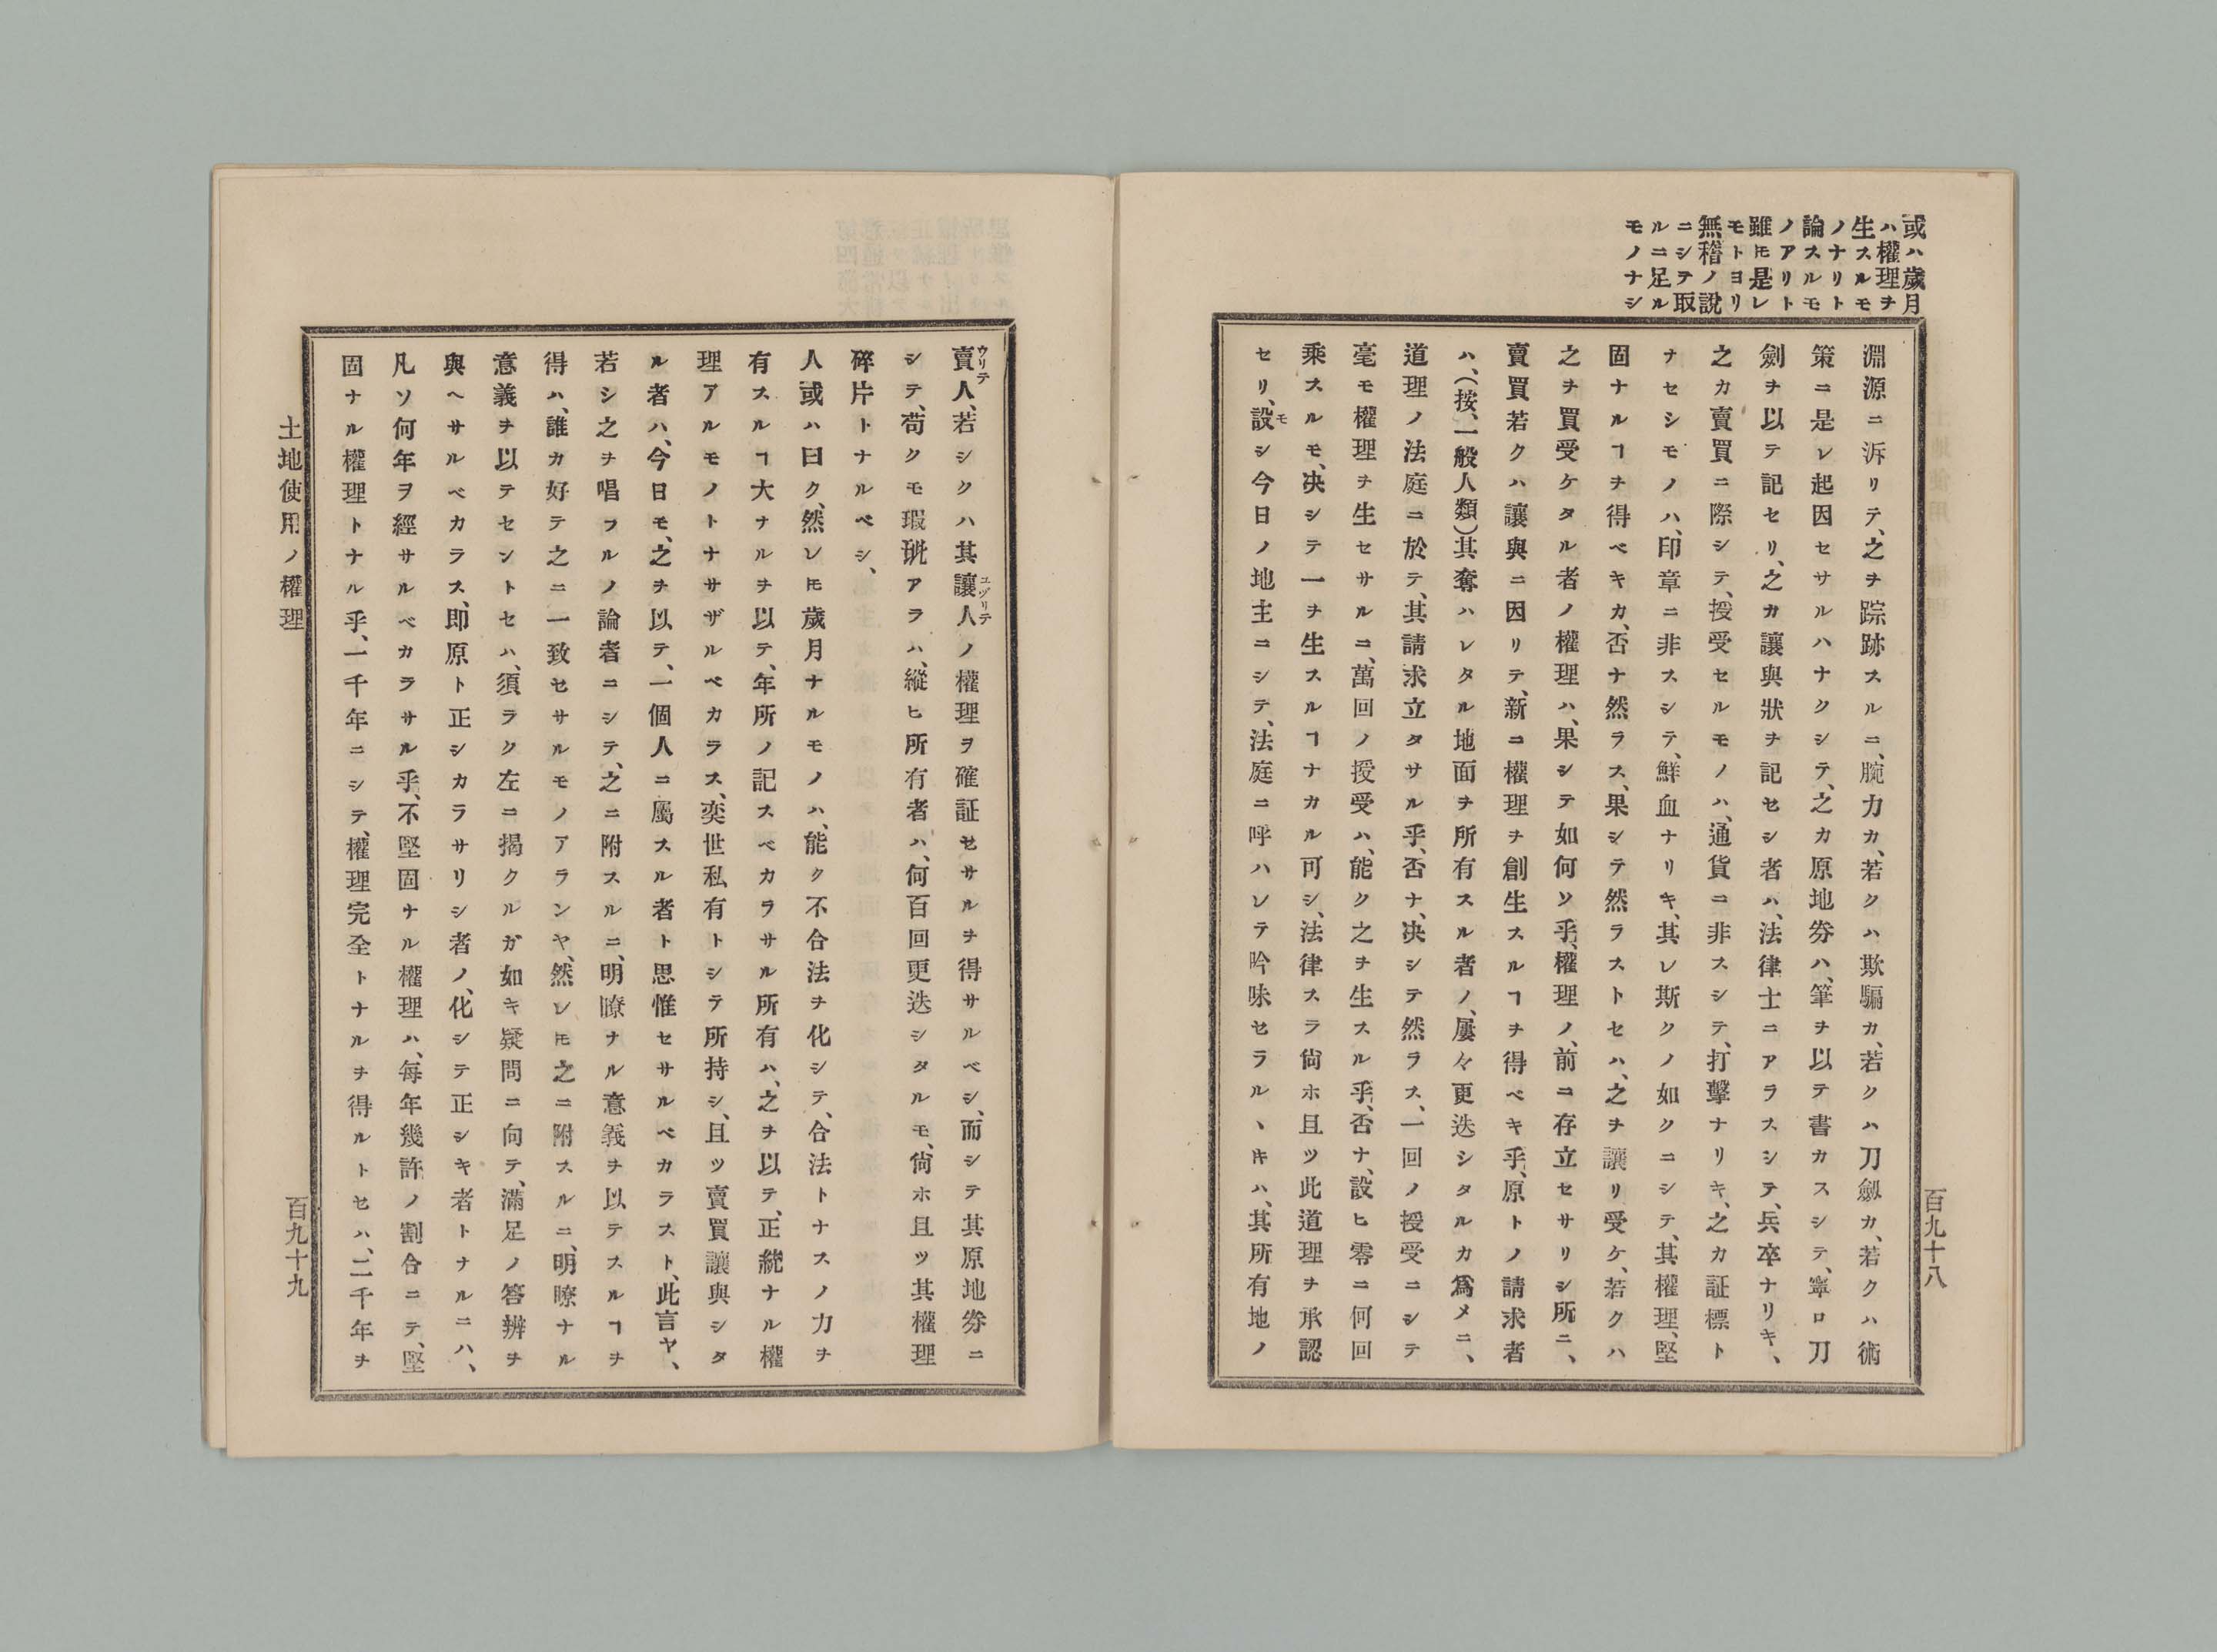 或ハ歲月
ハ權理ヲ
生スルモ
ノナリト
論スルモ
ノアリト
雖𪜈是レ
モトヨリ
無稽ノ說
ニシテ取
ルニ足ル
モノナシ
淵源ニ泝リテ、之ヲ踪跡スルニ、腕力カ、若クハ欺騙カ、若クハ刀劔カ、若クハ術
策ニ是レ起因セサルハナクシテ、之カ原地劵ハ、筆ヲ以テ書カスシテ、寧ロ刀
劍ヲ以テ記セリ、之カ讓與狀ヲ記セシ者ハ、法律士ニアラスシテ、兵卒ナリキ、
之カ賣買ニ際シテ、授受セルモノハ、通貨ニ非スシテ、打擊ナリキ、之カ証標ト
ナセシモノハ、印章ニ非スシテ、鮮血ナリキ、其レ斯クノ如クニシテ、其權理、堅
固ナルヿヲ得ベキカ、否ナ然ラス、果シテ然ラストセハ、之ヲ讓リ受ケ、若クハ
之ヲ買受ケタル者ノ權理ハ、果シテ如何ソ乎、權理ノ、前ニ存立セサリシ所ニ、
賣買若クハ讓與ニ因リテ、新ニ權理ヲ創生スルヿヲ得ベキ乎、原トノ請求者
ハ、（按、一般人類）其奪ハレタル地面ヲ所有スル者ノ、屢々更迭シタルカ爲メニ、
道理ノ法庭ニ於テ、其請求立タサル乎、否ナ、决シテ然ラス、一回ノ授受ニシテ
毫モ權理ヲ生セサルニ、萬回ノ授受ハ、能ク之ヲ生スル乎、否ナ、設ヒ零ニ何回
乘スルモ、决シテ一ヲ生スルヿナカル可シ、法律スラ尙ホ且ツ此道理ヲ承認
セリ、設シ今日ノ地主ニシテ、法庭ニ呼ハレテ吟味セラルヽキハ、其所有地ノ
モ
百九十八
賣人、若シクハ其讓人ノ權理ヲ確証セサルヲ得サルベシ、而シテ其原地劵ニ
ウリテ
ユヅリテ
シテ、苟クモ瑕玼アラハ、縱ヒ所有者ハ、何百回更迭シタルモ、尙ホ且ツ其權理
碎片トナルベシ、
人或ハ曰ク、然レ𪜈歲月ナルモノハ、能ク不合法ヲ化シテ、合法トナスノ力ヲ
有スルヿ大ナルヲ以テ、年所ノ記スベカラサル所有ハ、之ヲ以テ、正統ナル權
理アルモノトナサザルベカラス、奕世私有トシテ所持シ、且ツ賣買讓與シタ
ル者ハ、今日モ、之ヲ以テ、一個人ニ屬スル者ト思惟セサルベカラスト、此言ヤ、
若シ之ヲ唱フルノ論者ニシテ、之ニ附スルニ、明瞭ナル意義ヲ以テスルヿヲ
得ハ、誰カ好テ之ニ一致セサルモノアランヤ、然レ𪜈之ニ附スルニ、明瞭ナル
意義ヲ以テセントセハ、須ラク左ニ揭クルガ如キ疑問ニ向テ、滿足ノ答辨ヲ
與ヘサルベカラス、即原ト正シカラサリシ者ノ、化シテ正シキ者トナルニハ、
凡ソ何年ヲ經サルベカラサル乎、不堅固ナル權理ハ、每年幾許ノ割合ニテ、堅
固ナル權理トナル乎、一千年ニシテ、權理完全トナルヲ得ルトセハ、二千年ヲ
土地使用ノ權理
百九十九